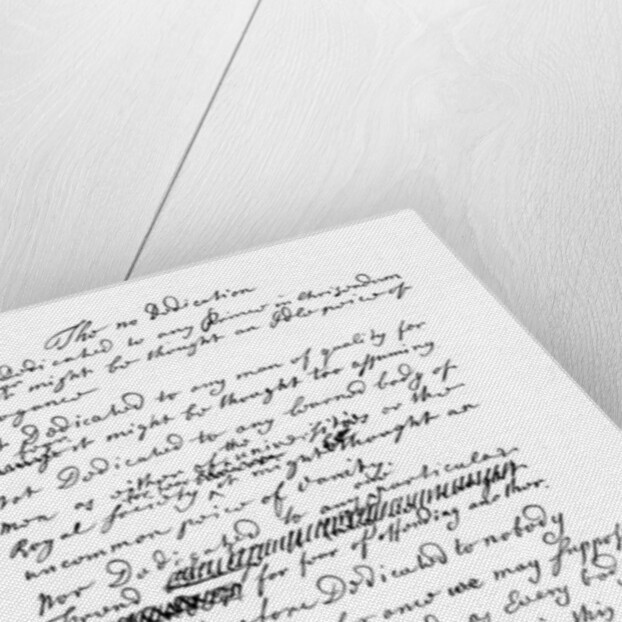 The no Dedication
Dedicated to any Prince in Christendom
for might be thought an Idle peice of
ogance
t Dedicated to any man of quality for
it might be thought too assuming
Not Dedicated to any learned body of
Men as either of the universitys or the
Royal society it might thought an
uncommon peice of Vanity.
Nor Dedicated to any particular
friend for fear of offending another.
fore Dedicated to nobody
for once we may suppos
Every bod
this